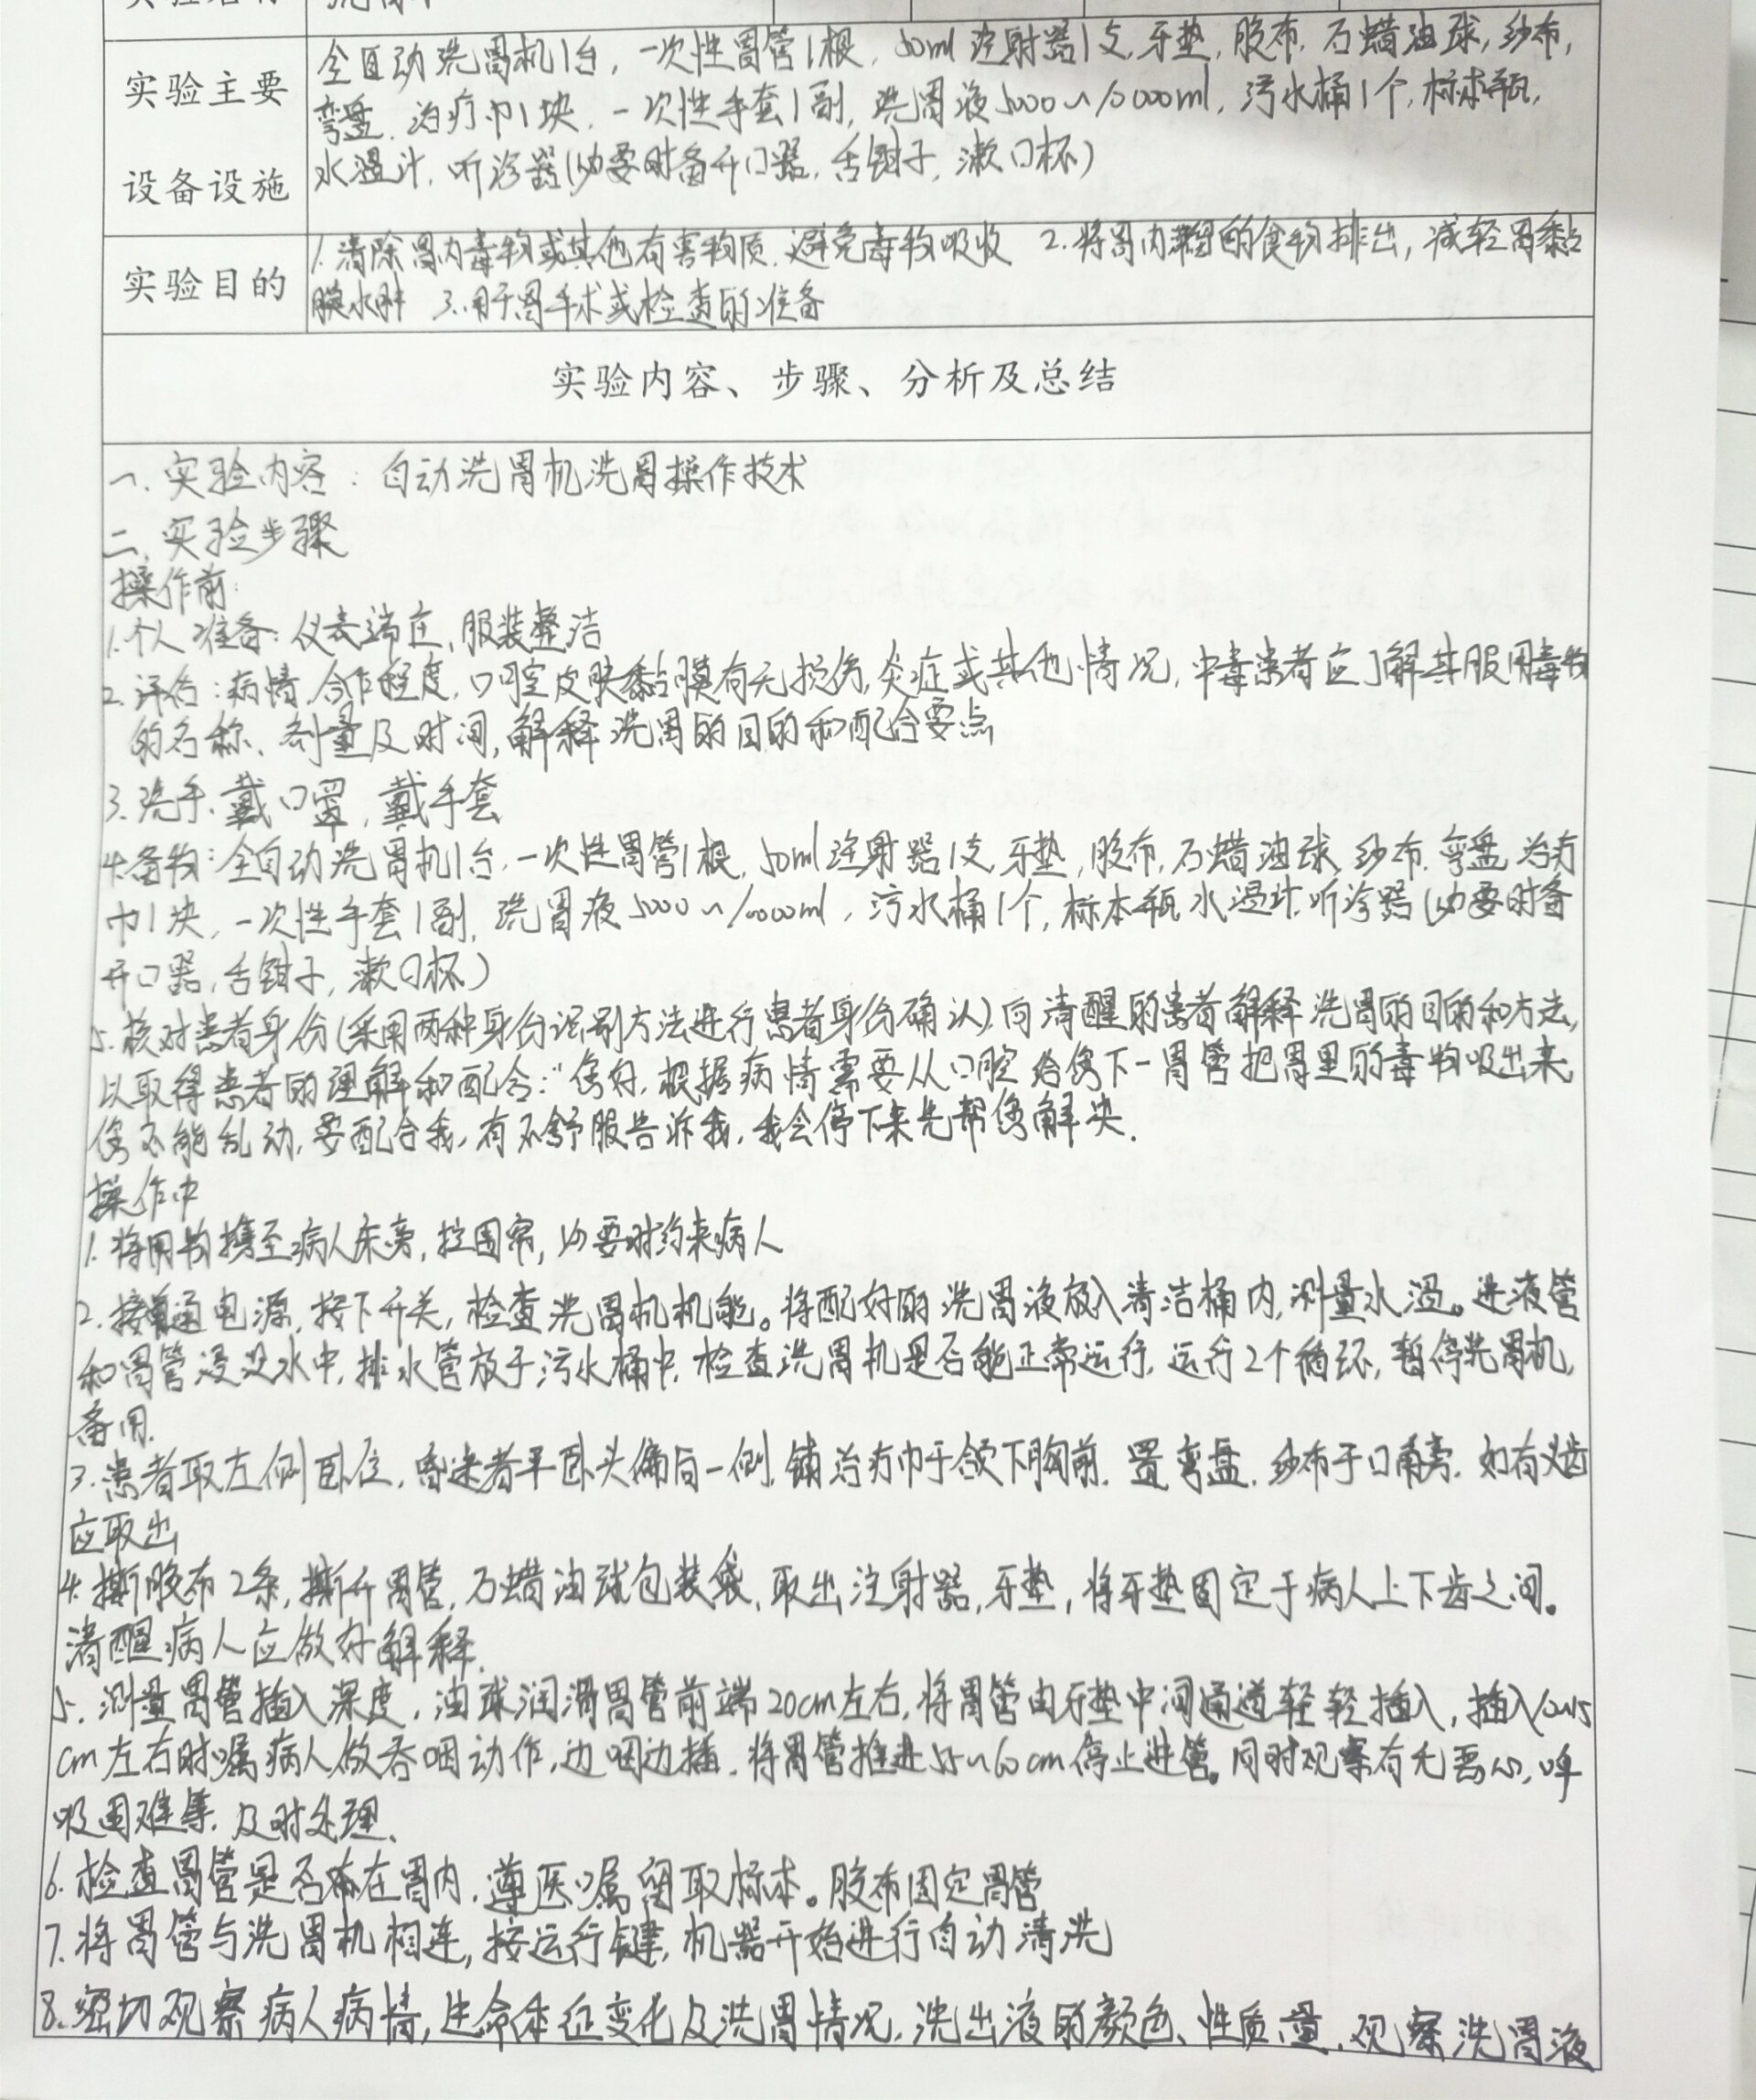 全自动洗胃机1台，一次性胃管1根，50ml注射器1支，牙垫，胶布，石蜡油球，纱布，
实验主要
弯盘，治疗巾1块，一次性手套1副，洗胃液5000~10000ml，污水桶1个，标本瓶，
设备设施
水温计，听诊器(必要时备开口器，舌钳子，漱口杯)
实验目的
1.清除胃内毒物或其他有害物质，避免毒物吸收 2.将胃内潴留的食物排出，减轻胃黏
膜水肿 3.用于胃手术或检查的准备
实验内容、步骤、分析及总结
一、实验内容：自动洗胃机洗胃操作技术
二、实验步骤
操作前：
1.个人准备：仪表端庄，服装整洁
2.评估：病情，合作程度，口腔皮肤黏膜有无损伤，炎症或其他情况，中毒患者应了解其服用毒物
的名称、剂量及时间，解释洗胃的目的和配合要点
3.洗手，戴口罩，戴手套
4.备物：全自动洗胃机1台，一次性胃管1根，50ml注射器1支，牙垫，胶布，石蜡油球，纱布，弯盘，治疗
巾1块，一次性手套1副，洗胃液5000~10000ml，污水桶1个，标本瓶，水温计，听诊器(必要时备
开口器，舌钳子，漱口杯)
5.核对患者身份(采用两种身份识别方法进行患者身份确认)，向清醒的患者解释洗胃的目的和方法，
以取得患者的理解和配合："您好，根据病情需要从口腔给您下一胃管把胃里的毒物吸出来，
您不能乱动，要配合我，有不舒服告诉我，我会停下来先帮您解决.
操作中
1.将用物携至病人床旁，拉围帘，必要时约束病人
2.接通电源，按下开关，检查洗胃机机能。将配好的洗胃液放入清洁桶内，测量水温。进液管
和胃管浸没水中，排水管放于污水桶中，检查洗胃机是否能正常运行，运行2个循环，暂停洗胃机，
备用.
3.患者取左侧卧位，昏迷者平卧头偏向一侧，铺治疗巾于颌下胸前，置弯盘，纱布于口角旁，如有义齿
应取出
4.撕胶布2条，撕开胃管，石蜡油球包装袋，取出注射器，牙垫，将牙垫固定于病人上下齿之间。
清醒病人应做好解释.
5.测量胃管插入深度，油球润滑胃管前端20cm左右，将胃管由牙垫中间通道轻轻插入，插入10~15
cm左右时嘱病人做吞咽动作，边咽边插，将胃管推进55~60cm停止进管。同时观察有无恶心，呼
吸困难等，及时处理.
6.检查胃管是否在胃内，遵医嘱留取标本。胶布固定胃管
7.将胃管与洗胃机相连，按运行键，机器开始进行自动清洗
8.密切观察病人病情，生命体征变化及洗胃情况，洗出液的颜色、性质、量，观察洗胃液